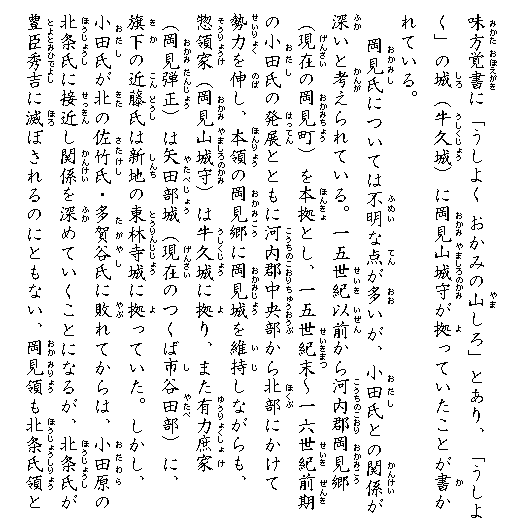 味方覚書に「うしよく おかみの山しろ」とあり、「うしよ
く」の城（牛久城）に岡見山城守が拠っていたことが書か
れている。
岡見氏については不明な点が多いが、小田氏との関係が
深いと考えられている。一五世紀以前から河内郡岡見郷
（現在の岡見町）を本拠とし、一五世紀末～一六世紀前期
の小田氏の発展とともに河内郡中央部から北部にかけて
勢力を伸し、本領の岡見郷に岡見城を維持しながらも、
惣領家（岡見山城守）は牛久城に拠り、また有力庶家
（岡見弾正）は矢田部城（現在のつくば市谷田部）に、
旗下の近藤氏は新地の東林寺城に拠っていた。しかし、
小田氏が北の佐竹氏・多賀谷氏に敗れてからは、小田原の
北条氏に接近し関係を深めていくことになるが、北条氏が
豊臣秀吉に滅ぼされるのにともない、岡見領も北条氏領と